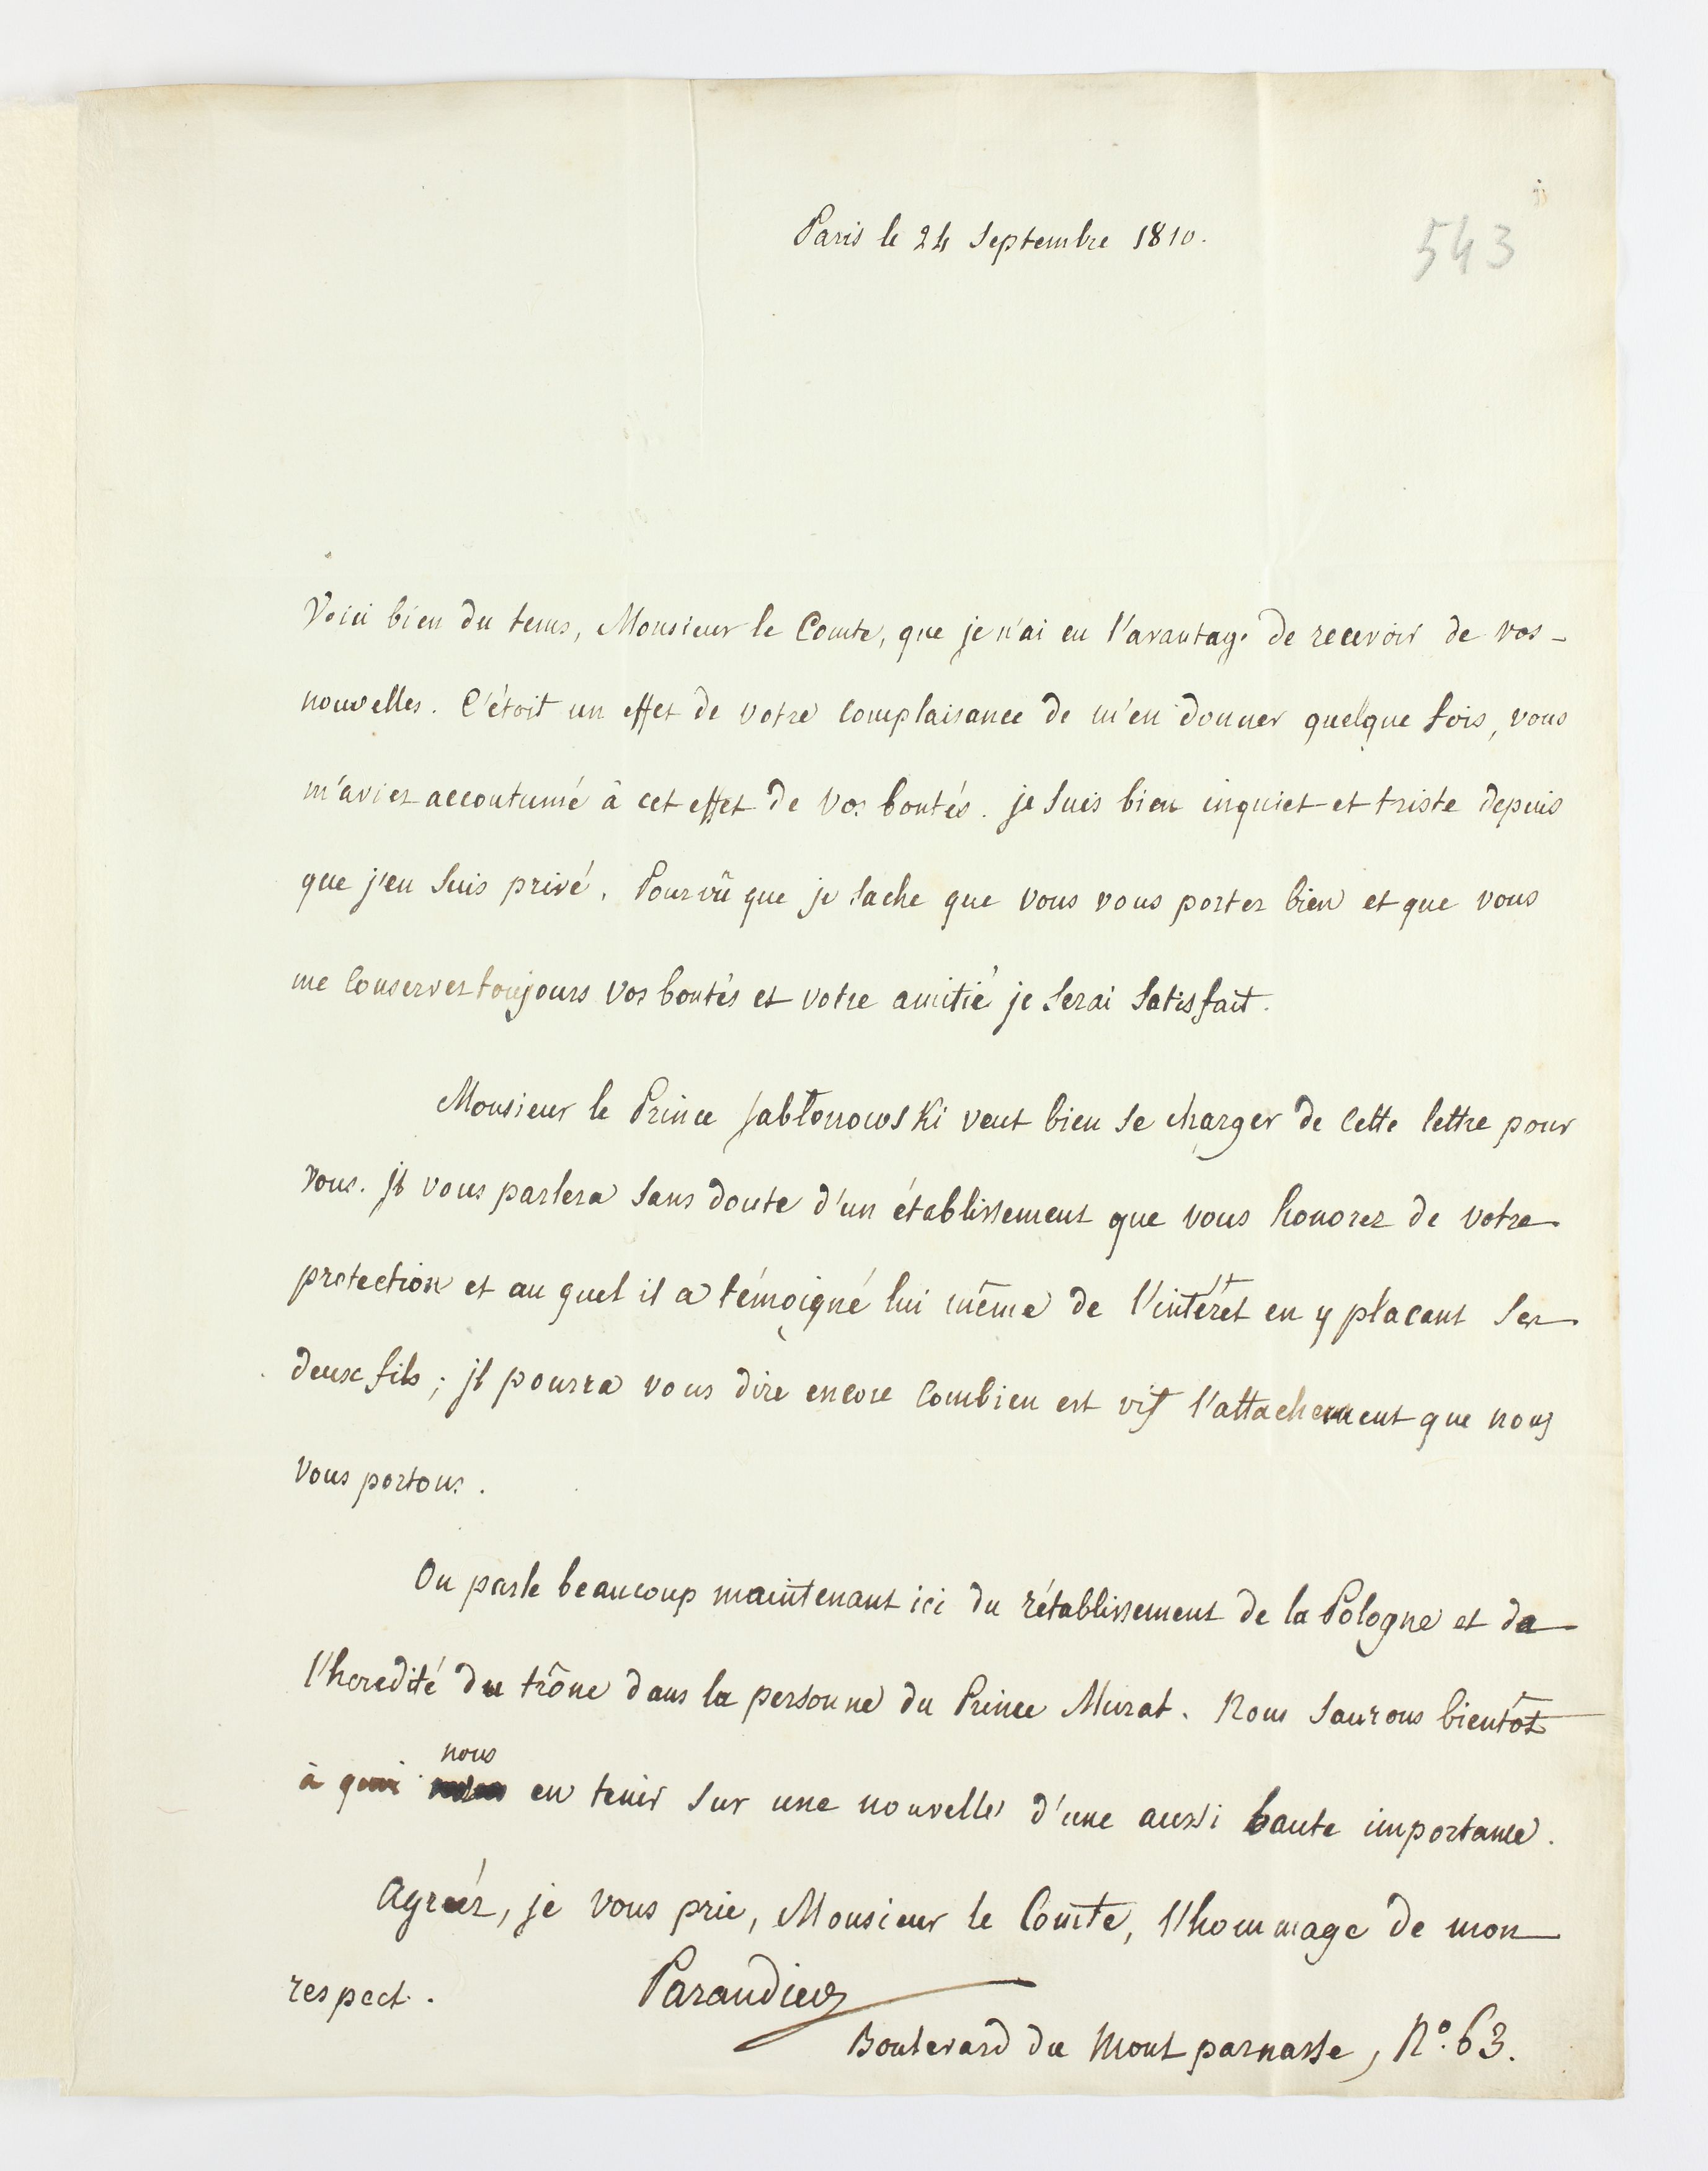 Paris le 24 Septembre 1810.
543
Voici bien du tems, Monsieur le Comte, que je n'ai eu l'avantage de recevoir de vos
nouvelles. C'étoit un effet de votre complaisance de m'en donner quelque fois, vous
m'aviez accoutumé à cet effet de vos bontés. je suis bien inquiet et triste depuis
que j'en suis privé. Pourvû que je sache que vous vous portez bien et que vous
me conservez toujours vos bontés et votre amitié je serai satisfait.
Monsieur le Prince Jabłonowski veut bien se charger de cette lettre pour
vous. jl vous parlera sans doute d'un établissement que vous honorez de votre
protection et au quel il a témoigné lui même de l'intérêt en y placant ses
deux fils; jl pourra vous dire encore combien est vif l'attachement que nous
vous portons.
On parle beaucoup maintenant ici du rétablissement de la Pologne et de
l'heredité du trône dans la personne du Prince Murat. Nous saurons bientôt
nous
à quoi en tenir sur une nouvelle d'une aussi haute importance.
Agréér, je vous prie, Monsieur le Comte, l'hommage de mon
respect. Parandier
Boulevard du Mont parnasse, N.º 63.